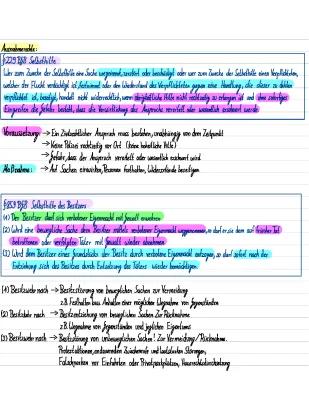 Ausnahmerechte:
§229 BGB Selbsthilfe
Wer zum Zwecke der Selbsthilfe eine Sache wegnimmt, zerstört oder beschädigt oder wer zum Zwecke der Selbsthilfe einen Verpflichteten,
welcher der Flucht verdächtig ist, festnimmt oder den Widerstand des Verpflichteten gegen eine Handlung, die dieser zu dulden
verpflichtet ist, beseitigt, handelt nicht widerrechtlich, wenn obrigkeitliche Hilfe nicht rechtzeitig zu erlangen ist und ohne sofortiges
Eingreifen die Gefahr besteht, dass die Verwirklichung des Anspruchs vereitelt oder wesentlich erschwert werde.
Voraussetzung: → Ein Zivilrechtlicher Anspruch muss bestehen, unabhängig von dem Zeitpunkt
→ Keine Polizei rechtzeitig vor Ort (keine hoheitliche Hilfe)
→ Gefahr, dass der Anspruch vereitelt oder wesentlich erschwert wird
Maßnahme: → Auf Sachen einwirken, Personen festhalten, Widerstände beseitigen
§859 BGB Selbsthilfe des Besitzers
(1) Der Besitzer darf sich verbotener Eigenmacht mit Gewalt erwehren
(2) Wird eine bewegliche Sache dem Besitzer mittels verbotener Eigenmacht weggenommen, so darf er sie dem auf frischer Tat
betroffenen oder verfolgten Täter mit Gewalt wieder abnehmen
(3) Wird dem Besitzer eines Grundstücks der Besitz durch verbotene Eigenmacht entzogen, so darf er sofort nach der
Entziehung sich des Besitzes durch Entsetzung des Täters wieder bemächtigen.
(1) Besitzwehr nach → Besitzstörung von beweglichen Sachen zur Vermeidung
z.B. Festhalten bzw. Anhalten einer möglichen Wegnahme von Gegenständen
(2) Besitzkehr nach → Besitzentziehung von beweglichen Sachen Zur Rücknahme
z.B. Wegnahme von Gegenständen und jeglichen Eigentums
(3) Besitzwehr nach → Besitzstörung von unbeweglichen Sachen! Zur Vermeidung / Rücknahme.
Falschparken vor Einfahrten oder Privatparkplätzen, Hausrechtsdurchsetzung